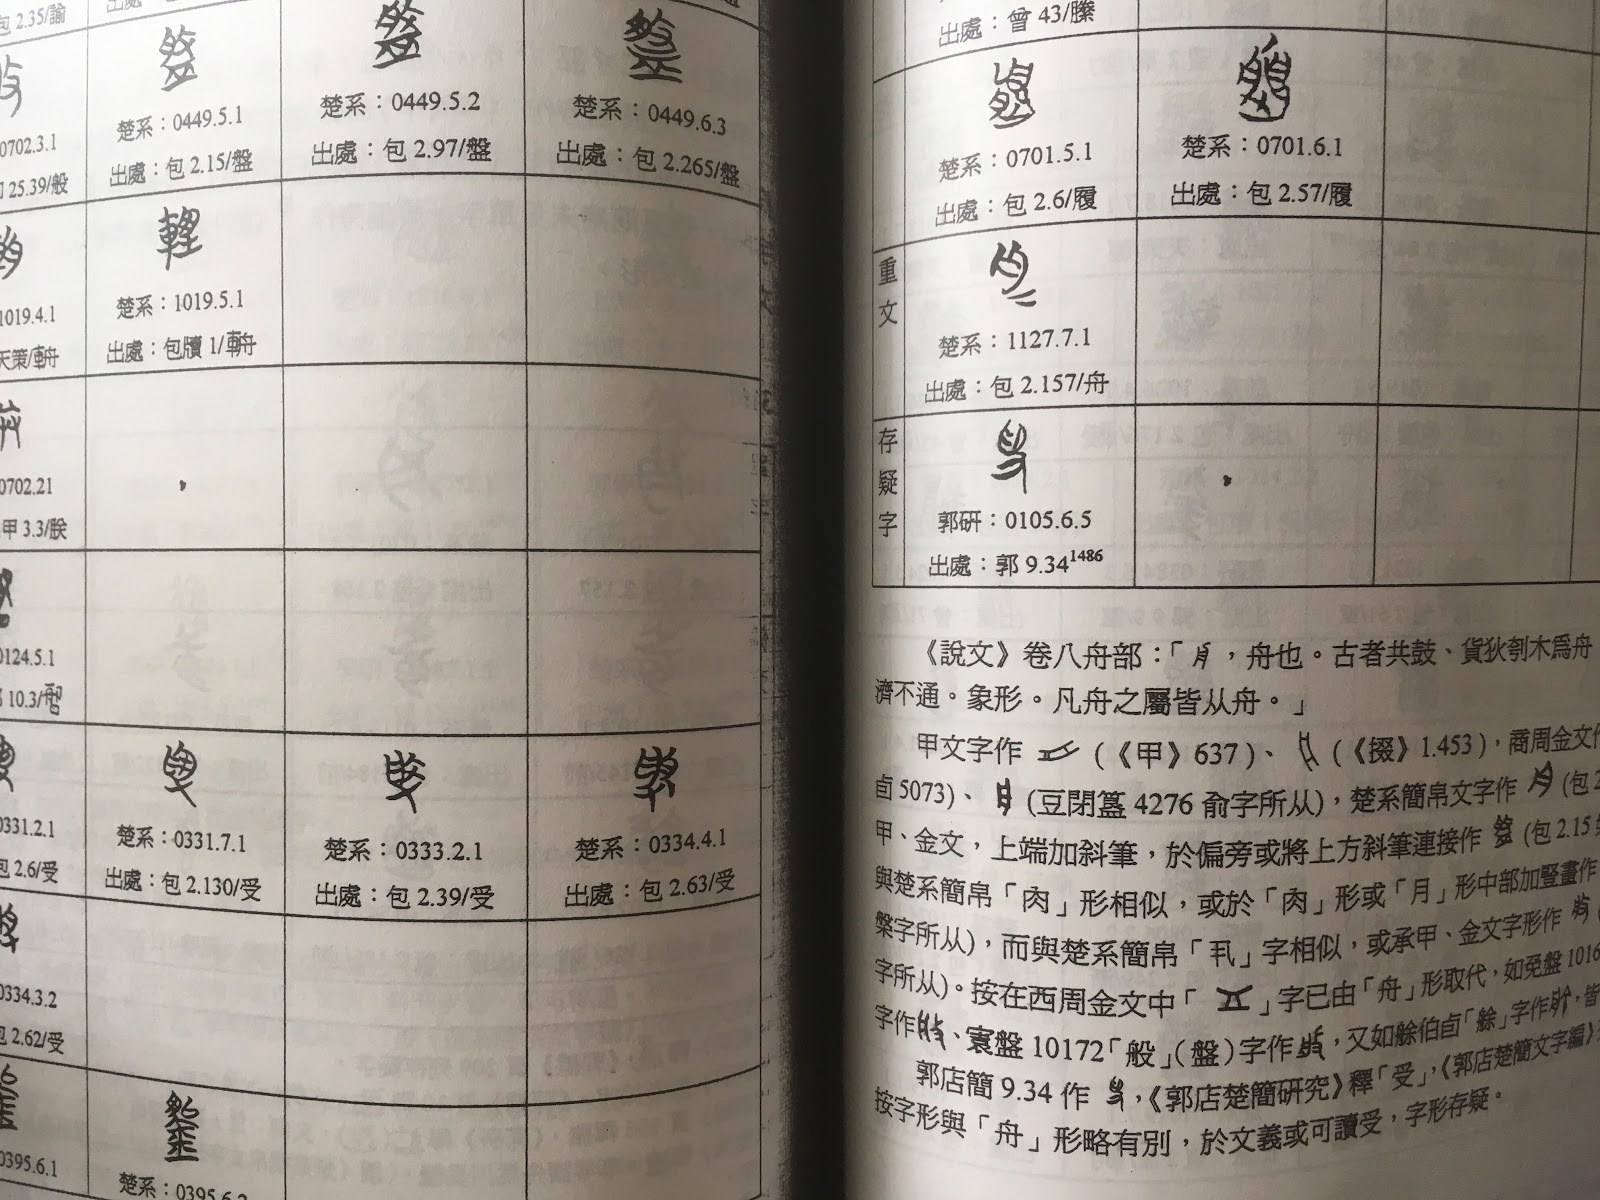 包 2.35/諭
楚系：0449.5.1
楚系：0449.5.2
楚系：0449.6.3
0702.3.1
出處：包 2.15/盤
出處：包 2.97/盤
出處：包 2.265/盤
25.39/般
楚系：1019.5.1
1019.4.1
出處：包牘 1/
天策/
0702.21
甲 3.3/朕
0124.5.1
10.3/
0331.2.1
楚系：0331.7.1
楚系：0333.2.1
楚系：0334.4.1
包 2.6/受
出處：包 2.130/受
出處：包 2.39/受
出處：包 2.63/受
0334.3.2
包 2.62/受
0395.6.1
楚系：0395.6.2
出處：曾 43/
楚系：0701.5.1
楚系：0701.6.1
出處：包 2.6/履
出處：包 2.57/履
重文
楚系：1127.7.1
出處：包 2.157/舟
存疑字
郭研：0105.6.5
出處：郭 9.34 1486
《說文》卷八舟部：「，舟也。古者共鼓、貨狄刳木為舟
濟不通。象形。凡舟之屬皆从舟。」
甲文字作 (《甲》637)、 (《掇》1.453)，商周金文作
卣 5073)、 (豆閉簋 4276 俞字所从)，楚系簡帛文字作 (包 2
甲、金文，上端加斜筆，於偏旁或將上方斜筆連接作 (包 2.15
與楚系簡帛「肉」形相似，或於「肉」形或「月」形中部加豎畫作
槃字所从)，而與楚系簡帛「」字相似，或承甲、金文字形作
字所从)。按在西周金文中「」字已由「舟」形取代，如免盤 1016
字作、寰盤 10172「般」(盤)字作，又如艅伯卣「艅」字作，皆
郭店簡 9.34 作 ，《郭店楚簡研究》釋「受」，《郭店楚簡文字編》
按字形與「舟」形略有別，於文義或可讀受，字形存疑。